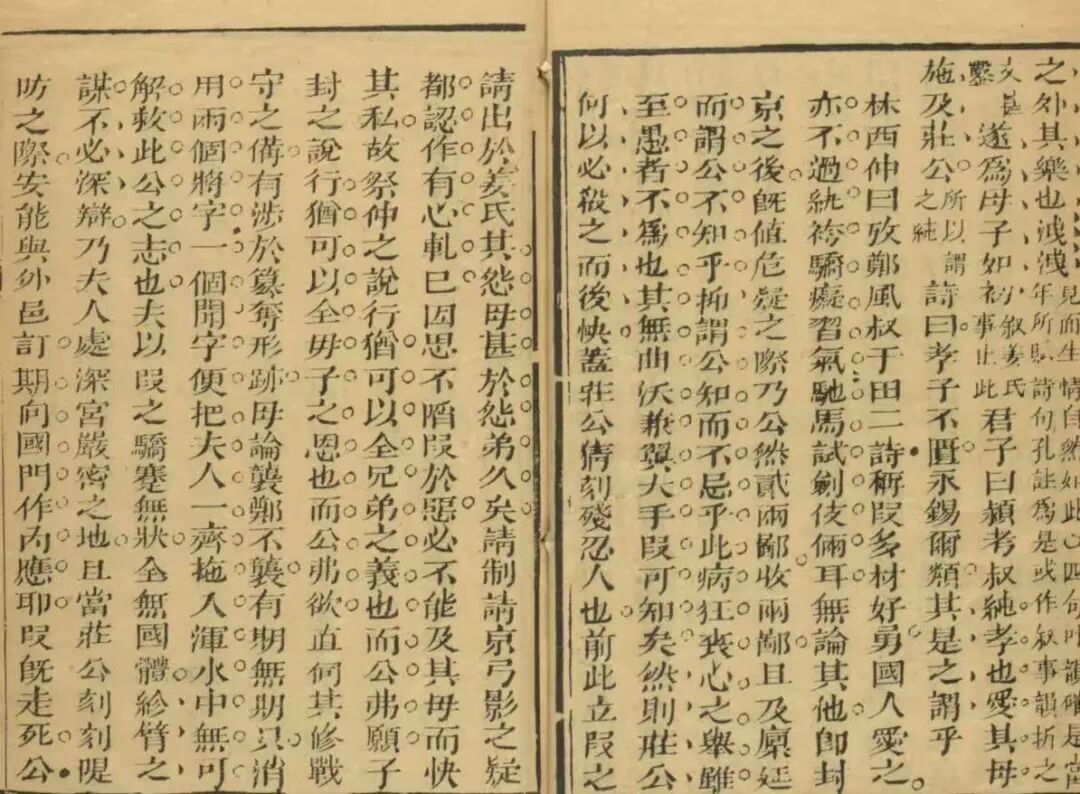 之外其樂也洩洩見而生情自然如此心四句叶韻確是當年所賦詩句孔註爲是或作叙事韻折之
鑿遂爲母子如初叙姜氏事止此君子曰潁考叔純孝也愛其母
施及莊公所以謂之純詩曰孝子不匱永錫爾類其是之謂乎
林西仲曰攷鄭風叔于田二詩稱叚多材好勇國人愛之
亦不過紈袴驕癡習氣馳馬試劍伎倆耳無論其他卽封
京之後旣值危疑之際乃公然貳兩鄙收兩鄙且及廩延
而謂公不知乎抑謂公知而不忌乎此病狂喪心之舉雖
至愚者不爲也其無曲沃兼翼大手叚可知矣然則莊公
何以必殺之而後快蓋莊公猜刻殘忍人也前此立叚之
請出於姜氏其怨母甚於怨弟久矣請制請京弓影之疑
都認作有心軋己因思不陷叚於惡必不能及其母而快
其私故祭仲之說行猶可以全兄弟之義也而公弗願子
封之說行猶可以全毋子之恩也而公弗欲直伺其修戰
守之備有涉於篡奪形跡毋論襲鄭不襲有期無期只消
用兩個將字一個開字便把夫人一齊拖入渾水中無可
解救此公之志也夫以叚之驕蹇無狀全無國體紾臂之
謀不必深辯乃夫人處深宮嚴密之地且當莊公刻刻隄
昉之際安能與外邑訂期向國門作內應耶叚旣走死公